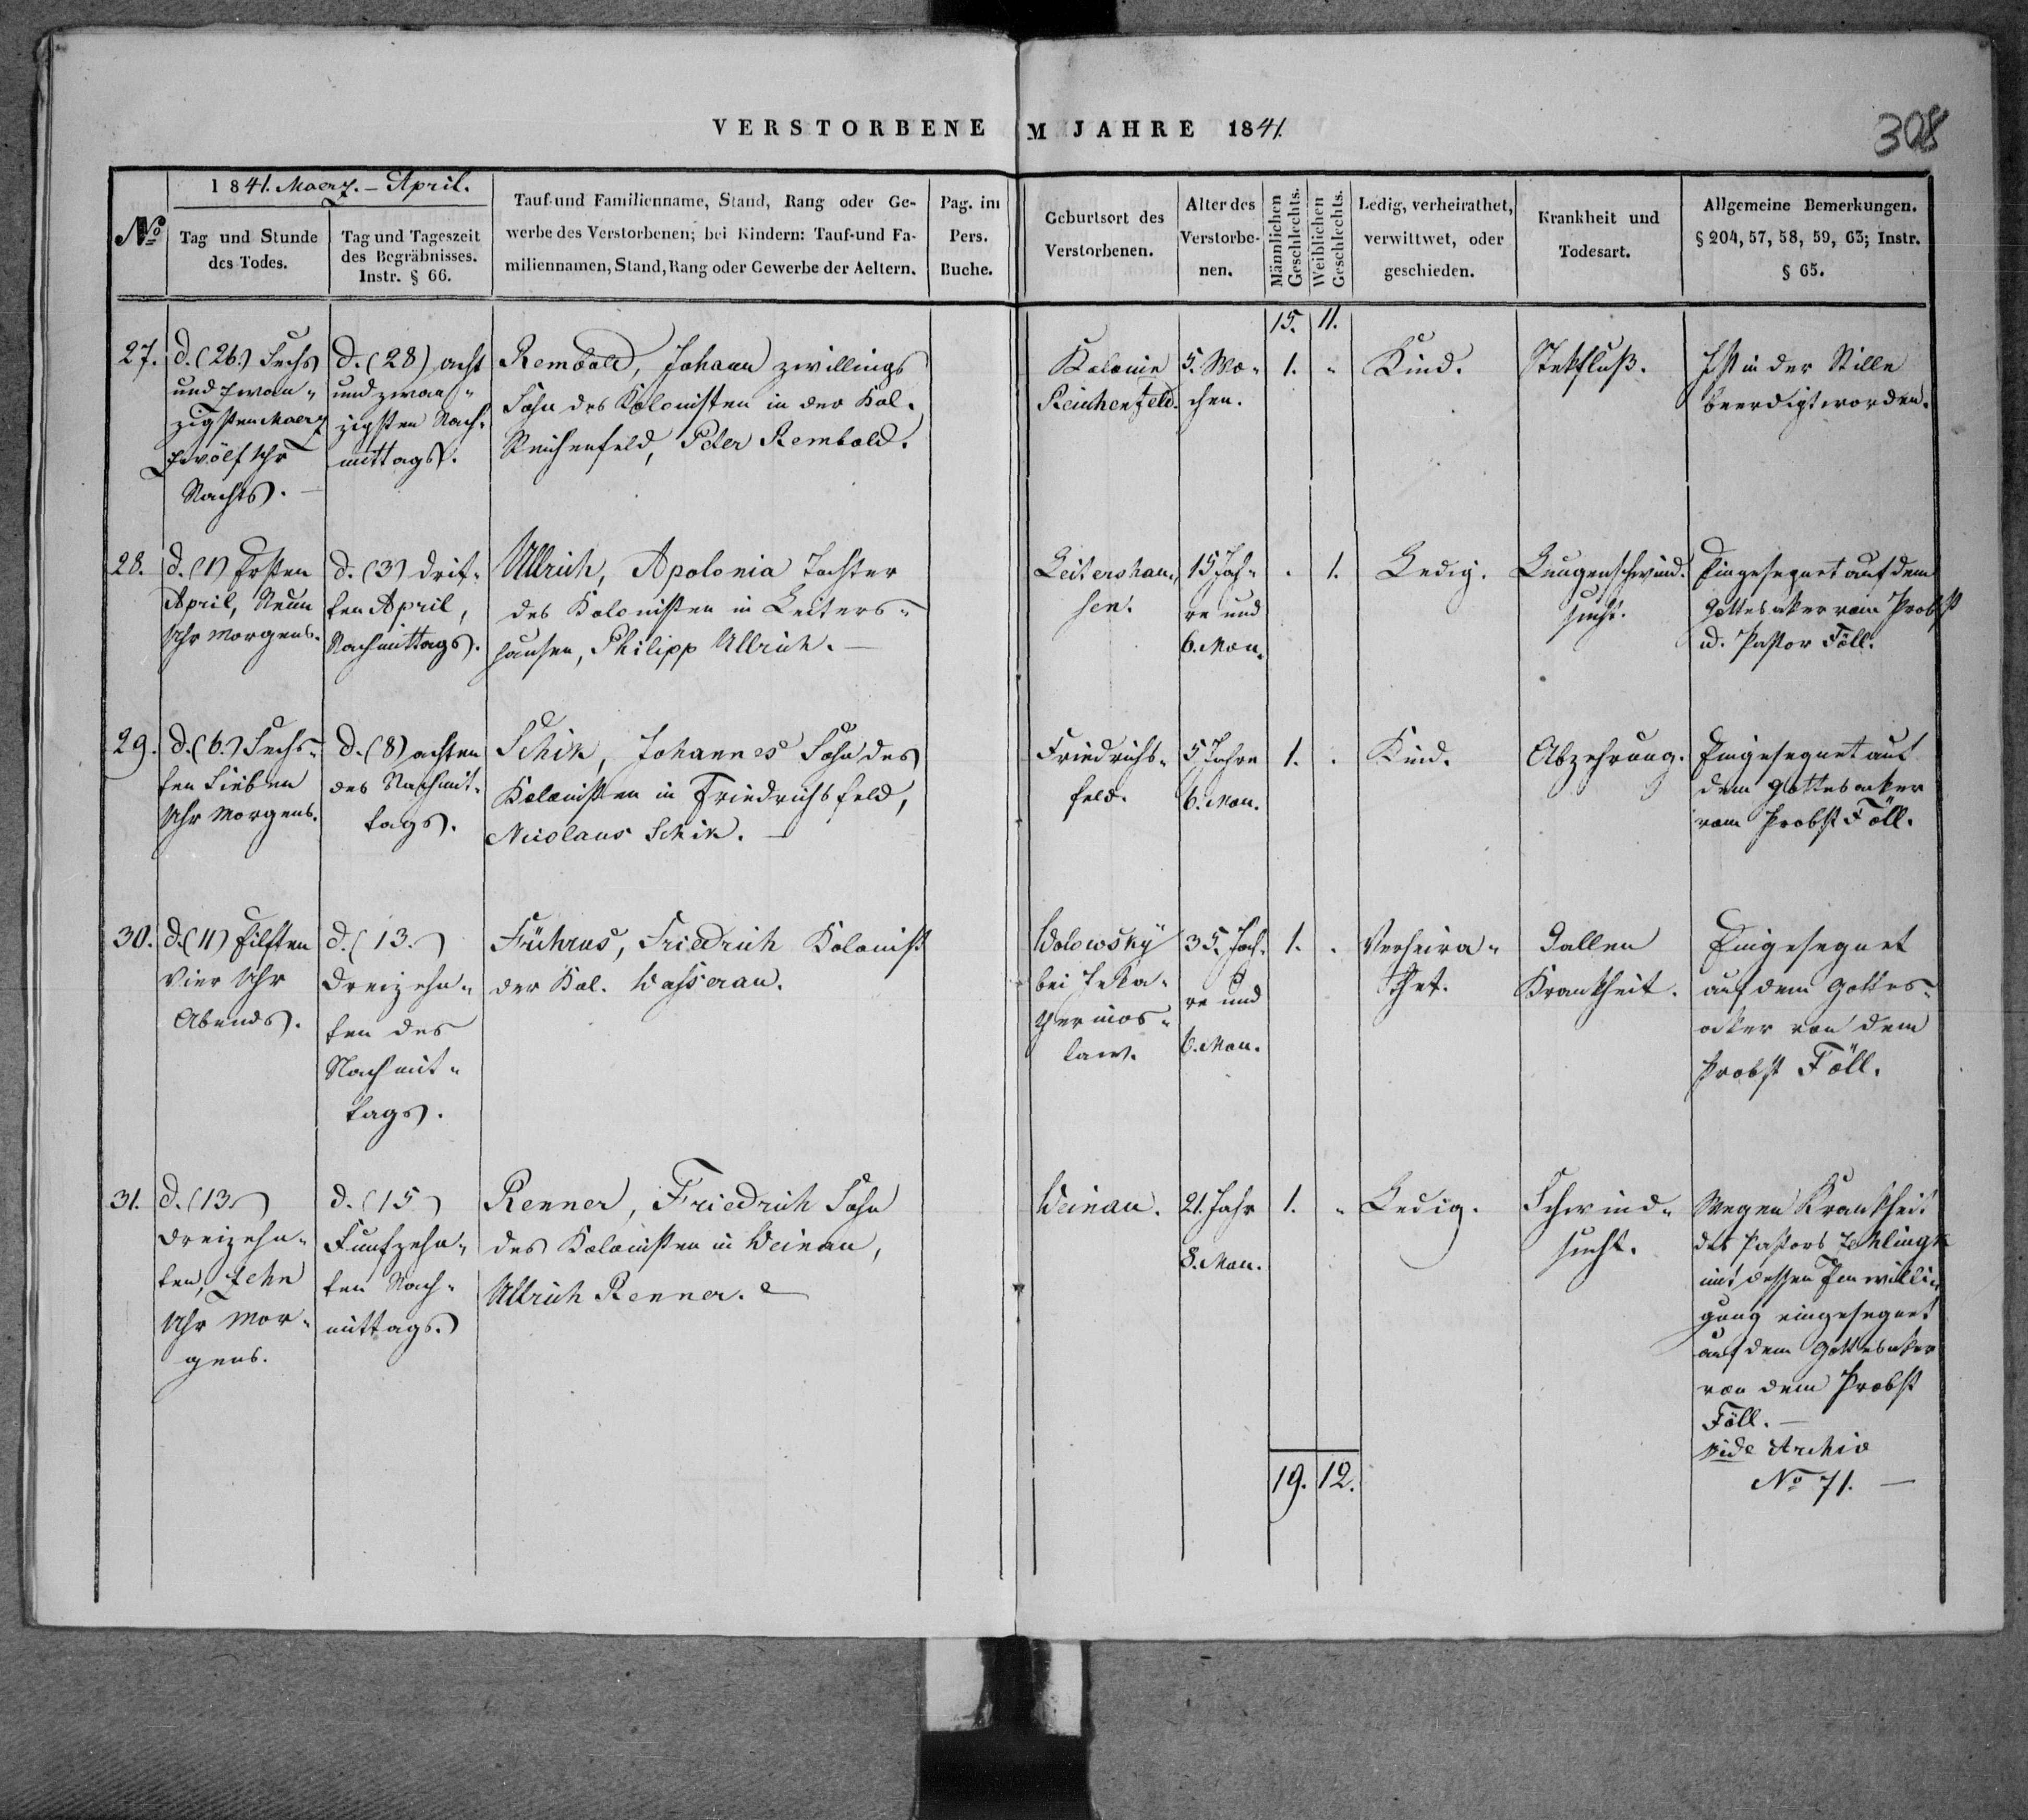 VERSTORBENE IM JAHRE 1841.
308
No
1841. Maerz. – April.
Tag und Stunde
des Todes.
Tag und Tageszeit
des Begräbnisses.
Instr. § 66.
Tauf- und Familienname, Stand, Rang oder Ge-
werbe des Verstorbenen; bei Kindern: Tauf- und Fa-
miliennamen, Stand, Rang oder Gewerbe der Aeltern.
Pag. im
Pers.
Buche.
Geburtsort des
Verstorbenen.
Alter des
Verstorbe-
nen.
Männlichen
Geschlechts.
Weiblichen
Geschlechts.
Ledig, verheirathet,
verwittwet, oder
geschieden.
Krankheit und
Todesart.
Allgemeine Bemerkungen.
§ 204, 57, 58, 59, 63; Instr.
§ 65.
15. 11.
27.
d. (26.) Sechs
und zwan„
zigsten Maerz
Zwölf Uhr
Nachts. –
d. (28) acht
und zwan„
zigsten Nach-
mittags.
Rembold, Johann zwillings
Sohn des Kolonisten in der Kol.
Reichenfeld, Peter Rembold.
Kolonie
Reichenfeld.
5. Wo„
chen.
1. „
Kind.
Stekfluß.
Ist in der Stille
beerdigt worden.
28.
d. (1) Ersten
April, Neun
Uhr Morgens.
d. (3) drit-
ten April,
Nachmittags.
Ullrich, Apolonia Tochter
des Kolonisten in Leiters„
hausen, Philipp Ullrich. –
Leitershau„
sen.
15 Jah„
re und
6. Mon.
„ 1.
Ledig.
Lungenschwind-
sucht.
Eingesegnet auf dem
Gottesaker vom Probst
u. Pastor Föll.
29.
d. (6.) Sechs„
ten Sieben
Uhr Morgens.
d. (8) achten
des Nachmit-
tags.
Schik, Johannes Sohn des
Kolonisten in Friedrichsfeld,
Nicolaus Schik. –
Friedrichs„
feld.
5 Jahre
6. Mon.
1. „
Kind.
Abzehrung.
Eingesegnet auf
dem Gottesaker
vom Probst Föll.
30.
d. (11) Eilften
Vier Uhr
Abends.
d. (13.)
dreizehn„
ten des
Nachmit„
tags.
Führus, Friedrich Kolonist
der Kol. Wasserau.
Wolowsky
bei Jeka„
therinos„
law.
35. Jah„
re und
6. Mon.
1. „
Verheira„
thet.
Gallen
Krankheit.
Eingesegnet
auf dem Gottes„
aker von dem
Probst Föll.
31.
d. (13.)
dreizehn„
ten, Zehn
Uhr Mor„
gens.
d. (15)
Funfzehn„
ten Nach„
mittags.
Renner, Friedrich Sohn
des Kolonisten in Weinau,
Ullrich Renner. –
Weinau.
21. Jahr
8. Mon.
1. „
Ledig.
Schwind„
sucht.
Wegen Krankheit
des Pastors
mit dessen Einwilli„
gung eingesegnet
auf dem Gottesaker
von dem Probst
Föll. –
vide Archiv
No 71. –
19. 12.